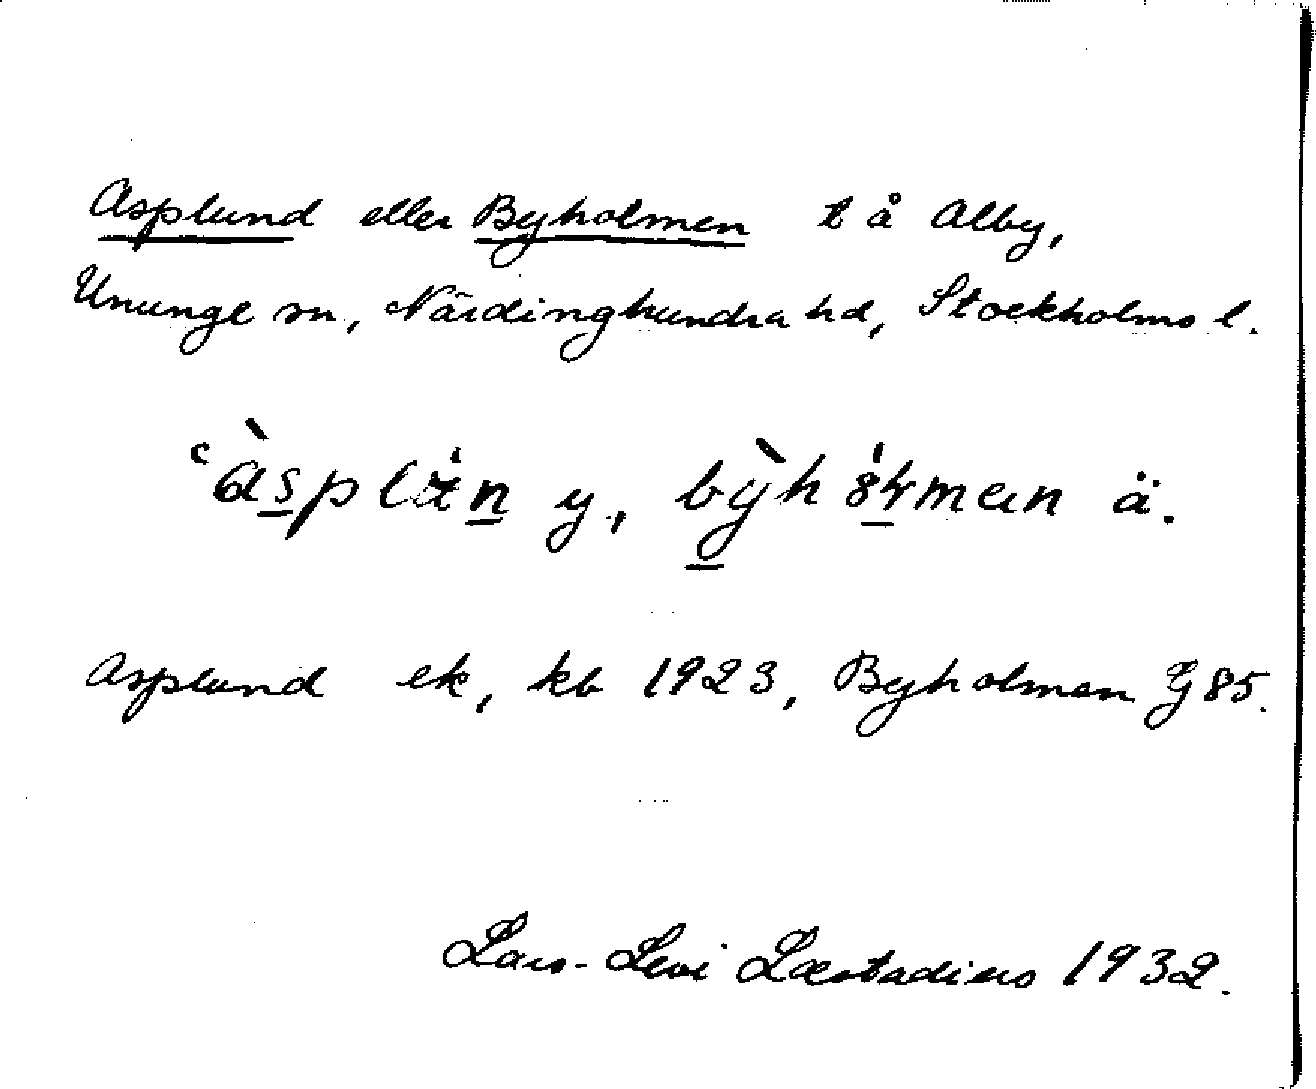 Asplund eller Byholmen t å Alby,
Ununge sn, Närdinghundra hd, Stockholms l.
y, ä.
Asplund ek, kb 1923, Byholmen G 85.
Lars-Levi Læstadius 1932.